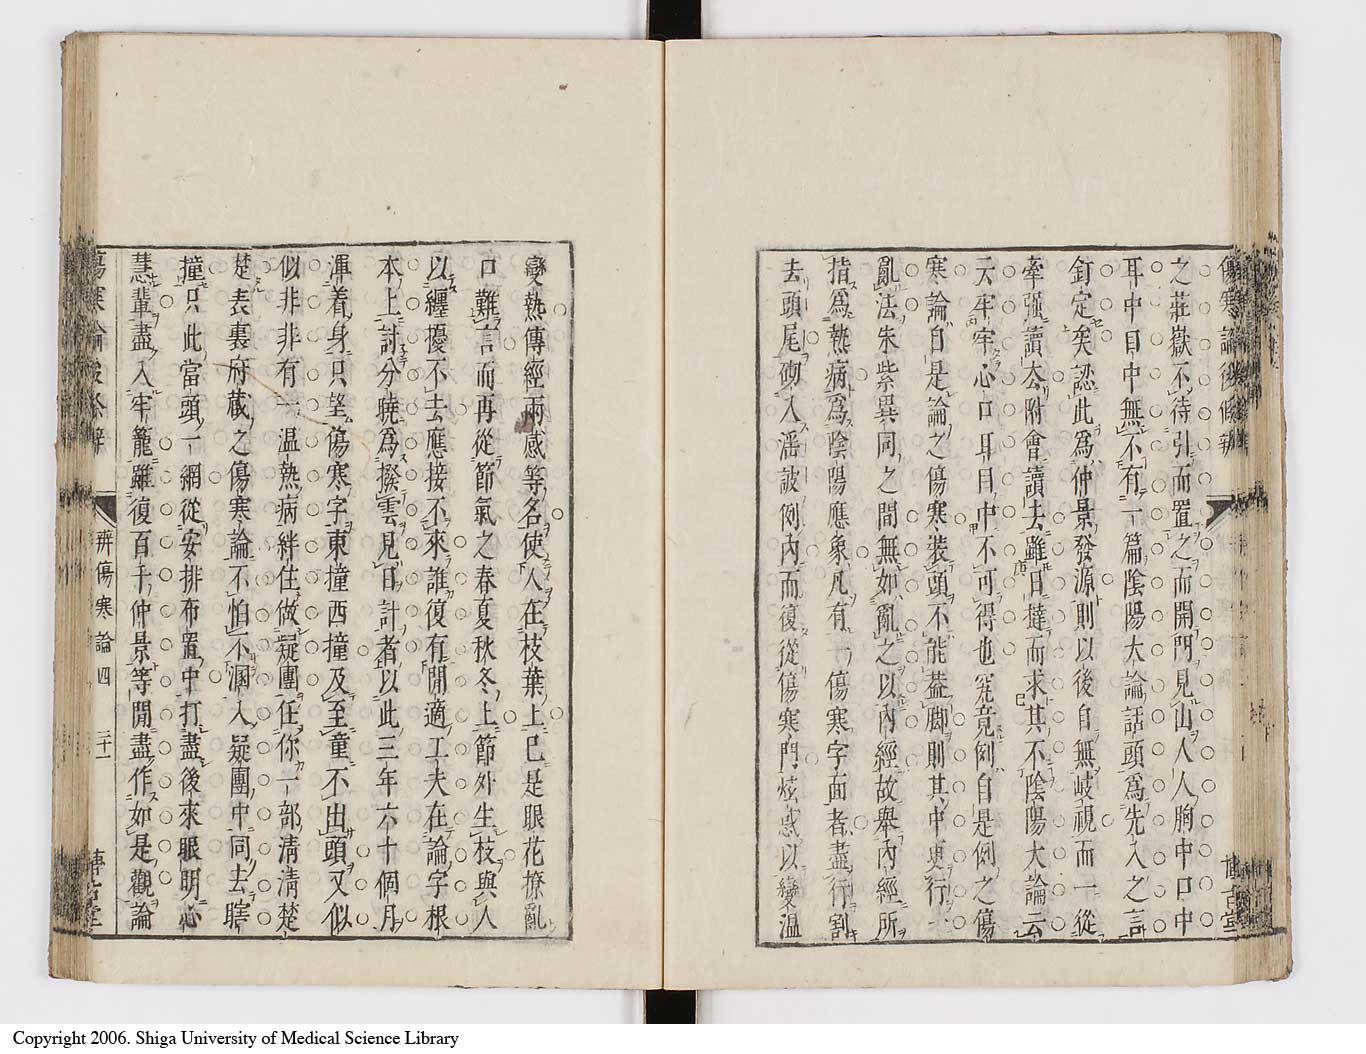 之莊嶽不待引而置之而開門見山人人胸中口中
耳中目中無不有一篇陰陽大論話頭爲先入之言
釘定矣認此爲仲景發源則以後自無岐視而一從
牽强讀去附會讀去雖日撻而求其不陰陽大論云
云牢牢心口耳目中不可得也究竟例自是例之傷
寒論自是論之傷寒裝頭不能葢脚則其中東行一
亂法朱紫異同之間無如亂之以內經故舉內經所
指爲熱病爲陰陽應象凡有一傷寒字面者盡行割
去頭尾砌入淫詖例內而復從傷寒門炫惑以變溫
變熱傳經兩感等名使人在枝葉上已是眼花撩亂
口難言而再從節氣之春夏秋冬上節外生枝與人
以纏擾不去應接不來誰復有閒適工夫在論字根
本上討分曉爲撥雲見日計者以此三年六十個月
渾着身只望傷寒字東撞西撞及至童不出頭又似
似非非有一温熱病絆住做疑團任你一部清清楚
楚表裏府藏之傷寒論不怕不溷入疑團中同去瞎
撞只此當頭一網從安排布置中打盡後來眼明心
慧輩盡入牢籠雖復百千仲景等閒盡作如是觀論
辨傷寒論四
二十一
Copyright 2006. Shiga University of Medical Science Library